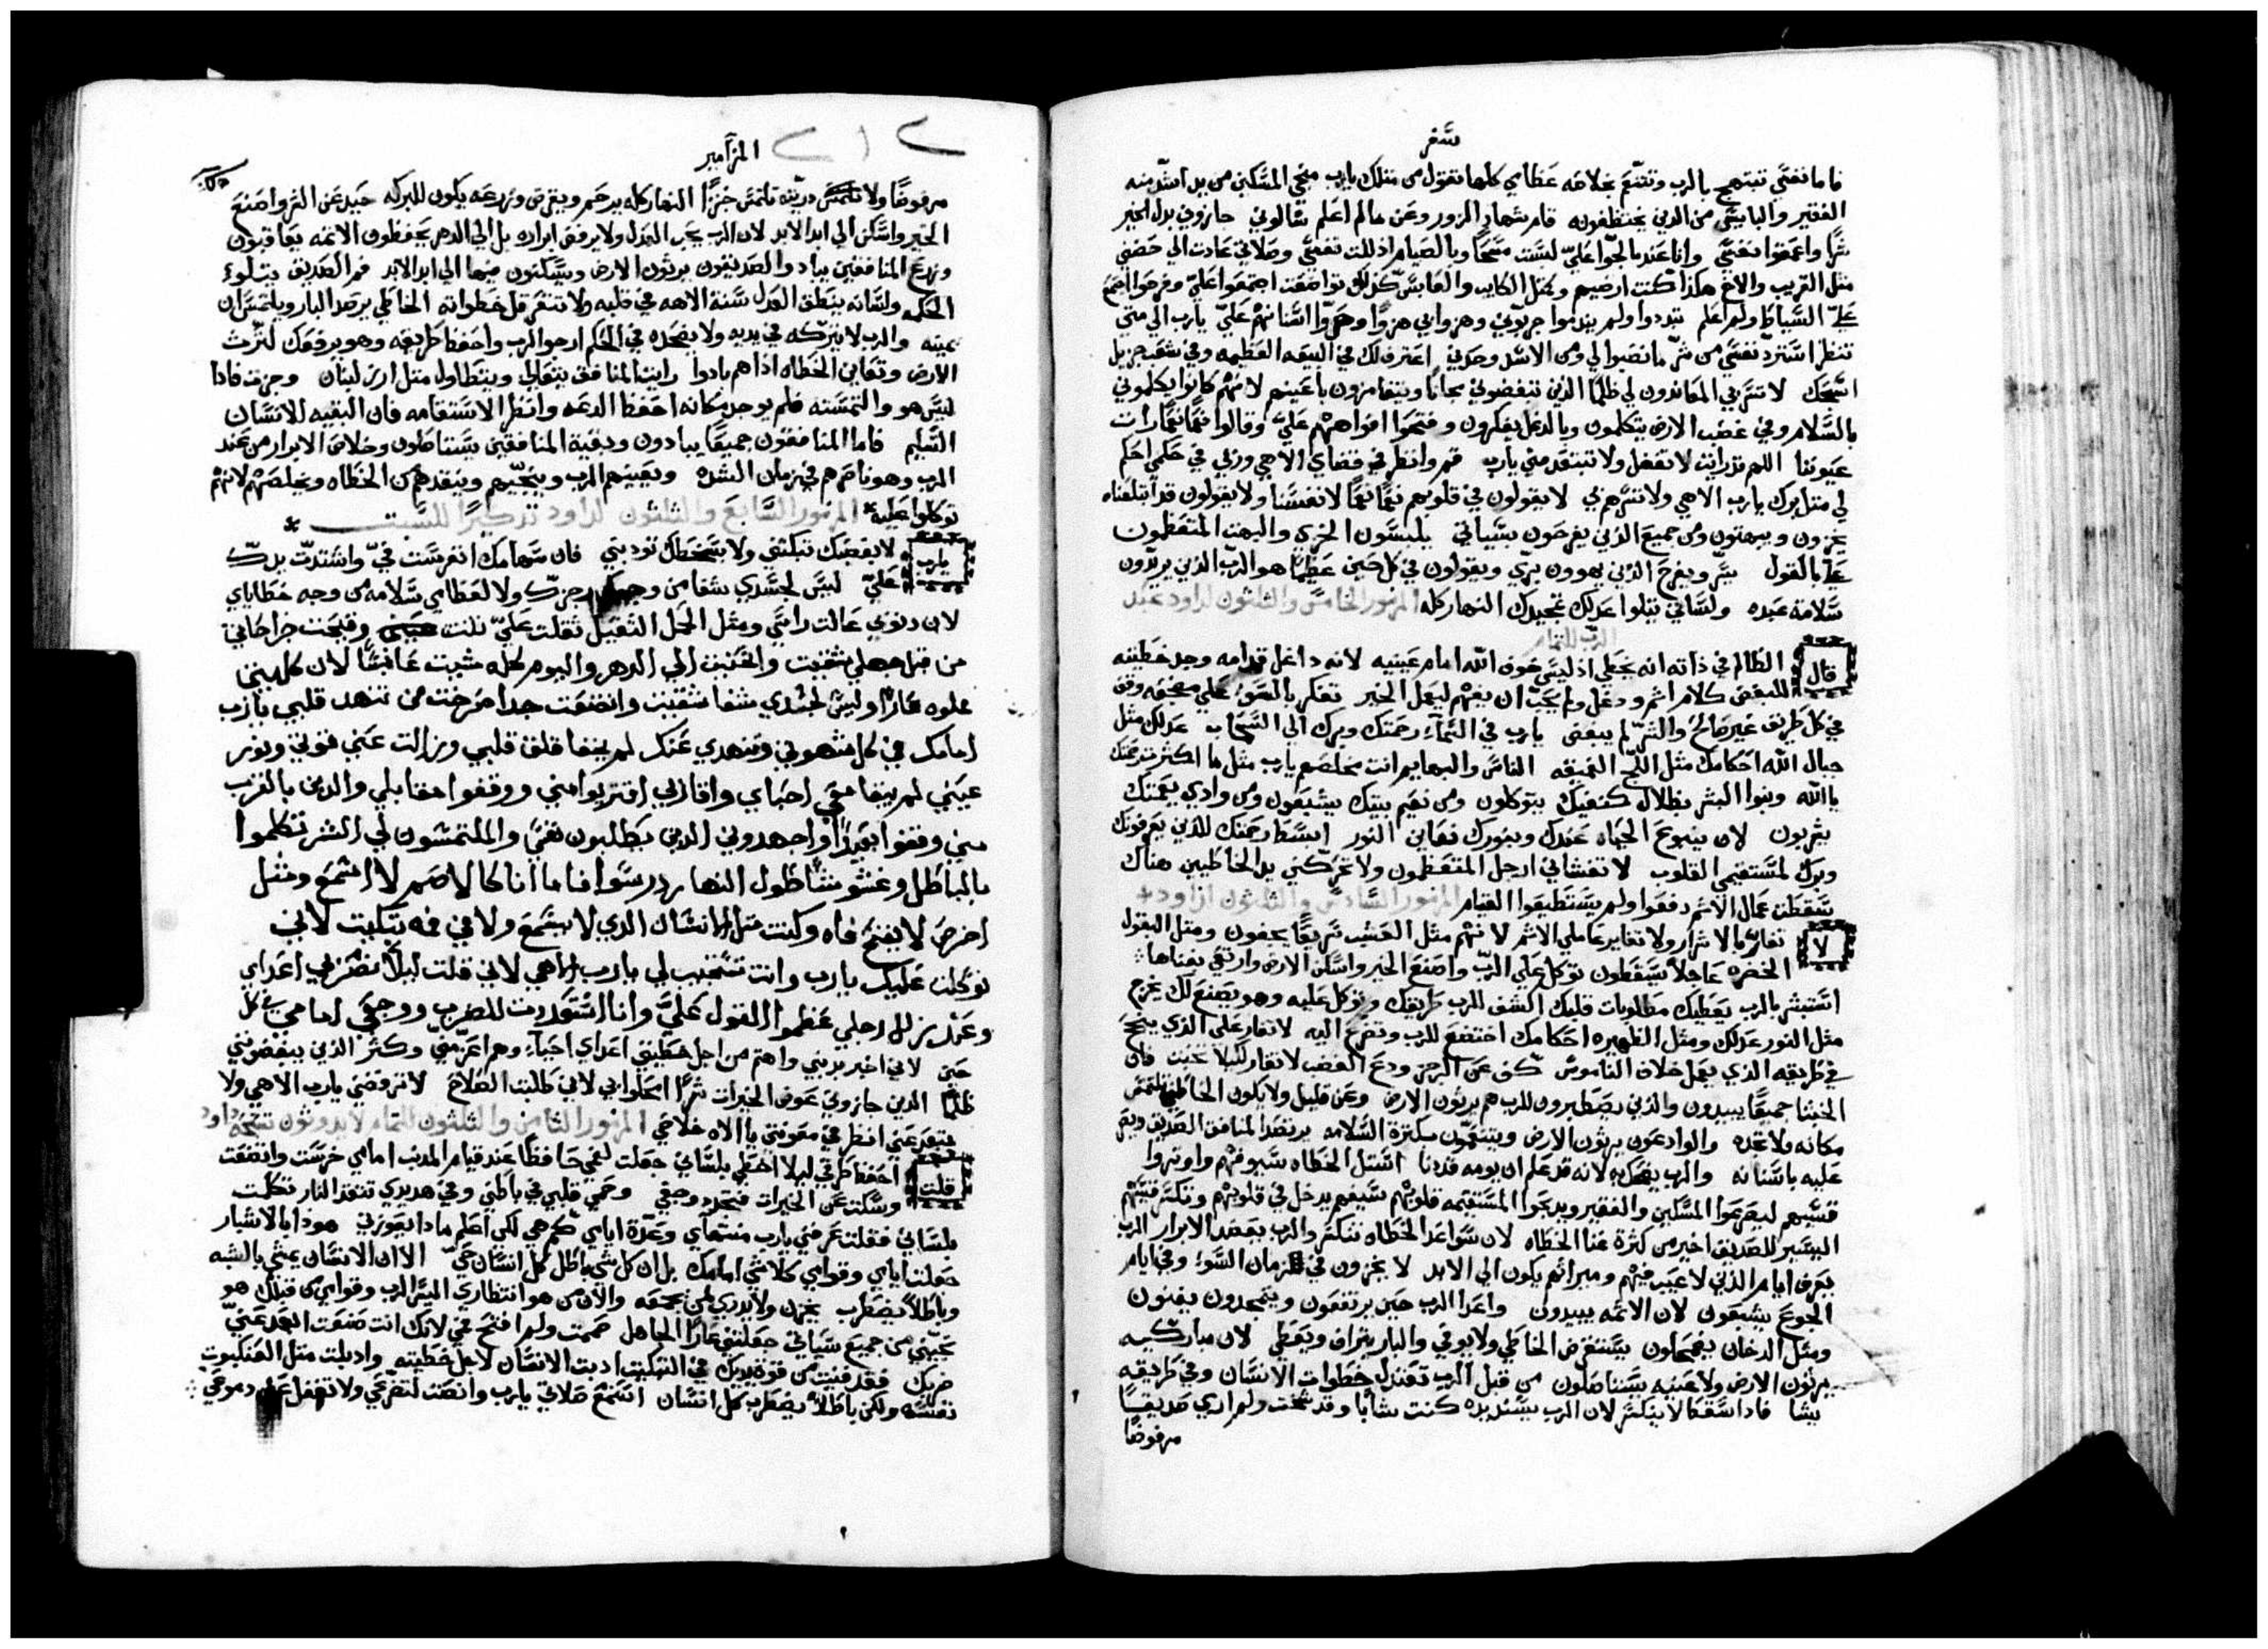 سفر
فاما نفسي تبتهج بالرب وتتنعم بخلاصه عظامي كلها تقول من مثلك يارب منجي المسكين من يد اشد منه
الفقير والبايس من الدين يختطفونه قام شهادة الزور وعن مالم اعلم سالوني جازوني بدل الخير
شرا واعقموا نفسي وانا عندما لجوا علي لبست مسحا وبالصيام اذللت نفسي وصلاتي عادت الي حضني
مثل القريب والاخ هكذا كنت ارضيهم ومثل الكايب والعابس كذلك تواضعت اجتمعوا علي وفرحوا اجتمع
علي السياط ولم اعلم تبددوا ولم يندموا جربوني وهزوا بي هزوا وصروا اسنانهم علي يارب الي متي
تنظر استرد نفسي من شر ما نصبوا لي ومن الاسد وحدتي اعترف لك في البيعه العظيمه وفي شعب جزيل
اسبحك لا تسر بي المعاندون لي ظلما الذين تبغضوني مجانا ويتغامزون باعينهم لانهم كانوا يكلموني
بالسلام وفي غضب الارض يتكلمون وبالدغل يفكرون وفتحوا افواههم علي وقالوا نعما نعما رات
عيوننا اللهم قد رايت لا تغفل ولا تبتعد مني يارب قم وانظر في قضاي الاهي وربي في حكمي احكم
لي مثل برك يارب الاهي ولا تسرهم بي لا يقولون في قلوبهم نعما نعما لانفسنا ولا يقولون قد ابتلعناه
يخزون ويبهتون من جميع الذين يفرحون بسياتي يلبسون الخزي والبهت المتعظمون
علي بالقول يسر ويفرح الذين يهوون بري ويقولون في كل حين عظيما هو الرب الذين يريدون
سلامة عبده ولساني يتلوا عدلك تمجيدك النهار كله المزمور الخامس والثلثون لداود عبد
الرب للتمام
قال الظالم في ذاته انه يخطي اذ ليس خوف الله امام عينيه لانه داغل قدامه وجد خطيته
للبغض كلام اثم ودغل ولم يحب ان يفهم ليعمل الخير تفكر بالسوء علي مضجعه وقف
في كل طريق غير صالح والشر لم يبغض يارب في السماء رحمتك وبرك الي السحاب عدلك مثل
جبال الله احكامك مثل اللج العميقه الناس والبهايم انت تخلصهم يارب مثل ما اكثرت رحمتك
يا الله وبنوا البشر بظلال كنفيك يتوكلون ومن نعيم بيتك يشبعون ومن وادي نعمتك
يشربون لان ينبوع الحياه عندك وبنورك نعاين النور ابسط رحمتك للذين يعرفونك
وبرك لمستقيمي القلوب لا تغشاني ارجل المتعظمون ولا تحركني يد الخاطيين هناك
سقطت عمال الاثم دفعوا ولم يستطيعوا القيام المزمور السادس والثلثون لداود
لا تغار بالاشرار ولا تغاير عاملي الاثم لانهم مثل العشب سريعا يجفون ومثل البقول
الخضره عاجلا يسقطون توكل علي الرب واصنع الخير واسكن الارض وارتعي بغناها
استبشر بالرب يعطيك مطلوبات قلبك اكشف للرب طريقك وتوكل عليه وهو يصنع لك يخرج
مثل النور عدلك ومثل الظهيره احكامك اختضع للرب وتضرع اليه لا تغار علي الذي ينجح
في طريقه الذي يعمل خلاف الناموس كف عن الرجز ودع الغضب لا تغار لئلا تخبث فان
الخبثا جميعا يبيدون والذين يصطبرون للرب هم يرثون الارض وعن قليل ولا يكون الخاطي تلتمس
مكانه ولا تجده والوادعون يرثون الارض ويتنعمون بكثرة السلامه يرتصد المنافق الصديق ويصر
عليه باسنانه والرب يضحك به لانه قد علم ان يومه قد دنا استل الخطاه سيوفهم واوتروا
قسيهم ليصرعوا المسكين والفقير ويذبحوا المستقيمه قلوبهم سيفهم يدخل في قلوبهم وتكسر قسيهم
اليسير للصديق اخير من كثرة غنا الخطاه لان سواعد الخطاه تنكسر والرب يعضد الابرار الرب
يعرف ايام الذين لا عيب فيهم وميراثهم يكون الي الابد لا يخزون في زمان السوء وفي ايام
الجوع يشبعون لان الاثمه يبيدون واعدا الرب حين يرتفعون ويتمجدون يفنون
ومثل الدخان يضمحلون يستقرض الخاطي ولا يوفي والبار يتراف ويعطي لان مباركيه
يرثون الارض ولاعنيه يستاصلون من قبل الرب تعتدل خطوات الانسان وفي طريقه
يشا فاذا سقط لا ينكسر لان الرب يسند يده كنت شابا وقد شخت ولم اري صديقا
مرفوضا
المزآمير
مرفوضا ولا ذريته تلتمس خبزا النهار كله يرحم ويقرض وزرعه يكون للبركه حيد عن الشر واصنع
الخير واسكن الي ابد الابد لان الرب يحب العدل ولا يرفض ابراره بل الي الدهر يحفظون الاثمه يعاقبون
وزرع المنافقين يباد والصديقون يرثون الارض ويسكنون فيها الي ابد الابد فم الصديق يتلوا
الحكمه ولسانه ينطق العدل سنة الاهه في قلبه ولا تتعرقل خطواته الخاطي يرصد البار ويلتمس ان
يميته والرب لا يتركه في يديه ولا يضحده في الحكم ارجو الرب واحفظ طريقه وهو يرفعك لترث
الارض وتعاين الخطاه اذا هم بادوا رايت المنافق يتعالي ويتطاول مثل ارز لبنان وجزت فاذا
ليس هو والتمسته فلم يوجد مكانه احفظ الدعه وانظر الاستقامه فان البقيه للانسان
السليم فاما المنافقون جميعا يبادون وبقية المنافقين يستاصلون وخلاص الابرار من عند
الرب وهو ناصرهم في زمان الشده ويعينهم الرب وينجيهم وينقدهم من الخطاه ويخلصهم لانهم
توكلوا عليه المزمور السابع والثلثون لداود تذكيرا للسبت
يارب لا بغضبك تبكتني ولا بسخطك تودبني فان سهامك انغرست في واشتدت يدك
علي ليس لجسدي شفا من وجه رجزك ولا لعظامي سلامه من وجه خطاياي
لان ذنوبي عالت راسي ومثل الحمل الثقيل ثقلت علي نتنت وقيحت جراحاتي
من قبل جهلي شقيت وانحنيت الي الدهر واليوم كله مشيت عابسا لان كليتي
علوه عارا وليس لجسدي شفا شقيت واتضعت جدا صرخت من تنهد قلبي يارب
امامك هي كل شهوتي وتنهدي عنك لم يخفا قلق قلبي وزالت عني قوتي ونور
عيني لم يبقا معي احباي واقاربي اقتربوا مني ووقفوا مقابلي والذين بالقرب
مني وقفوا بعيدا واجهدوني الذين يطلبون نفسي والملتمسون لي الشر تكلموا
بالباطل وغشوشا طول النهار درسوا فاما انا كالاصم لا اسمع ومثل
اخرص لا يفتح فاه وكنت مثل انسان الذي لا يسمع ولا في فه تبكيت لاني
توكلت عليك يارب وانت تستجيب لي يارب الاهي لاني قلت ليلا تضر بي اعداي
وعند زلل رجلي عظموا القول علي وانا استعددت للضرب ووجعي امامي في كل
حين لاني اخبر بذنبي واهتم من اجل خطيتي اعداي احياء وهم اعز مني وكثر الذين يبغضوني
ظلما الذين جازوني عوض الخيرات شرا امحلوا بي لاني طلبت الصلاح لا ترفضني يارب الاهي ولا
تبتعد عني انظر في معونتي يا الاه خلاصي المزمور الثامن والثلثون للتمام لايدوثون تسبحة داود
قلت احفظ طرقي ليلا اخطي بلساني جعلت لفمي حافظا عند قيام المذنب امامي خرست واتضعت
وسكت عن الخيرات فتجدد وجعي وحمي قلبي في باطني وفي هذيذي تتقد النار تكلمت
بلساني فقلت عرفني يارب منتهاي وعدة ايامي كم هي لكي اعلم ماذا يعوزني هوذا بالاشبار
جعلت ايامي وقوامي كلا شي امامك بل ان كل شي باطل كل انسان حي الا ان الانسان يمشي بالشبه
وباطلا يضطرب يخزن ولا يدري لمن يجمعه والان من هو انتظاري اليس الرب وقوامي من قبلك هو
نجيني من جميع سياتي جعلتني عارا للجاهل صمت ولم افتح فمي لانك انت صنعت ابعد عني
ضربك فقد فنيت من قوة يديك في التبكيت ادبت الانسان لاجل خطيته واذبلت مثل العنكبوت
نفسه ولكن باطلا يضطرب كل انسان استمع صلاتي يارب وانصت لتضرعي ولا تغفل عن دموعي